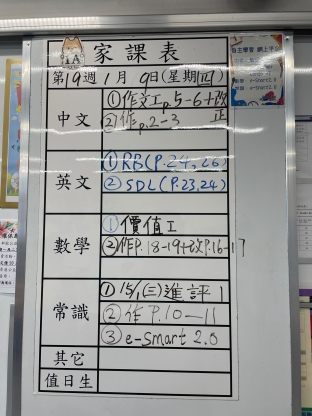 1A
家課表
第19週1月9日(星期四)
中文
①作文工p.5-6+改
②作p.2-3 正
英文
①RB(P.24,26)
②SDL(P.23,24)
數學
①價值工
②作P.18-19+改P.16-17
常識
①15/1(三)進評1
②作P.10—11
③e-smart 2.0
其它
值日生